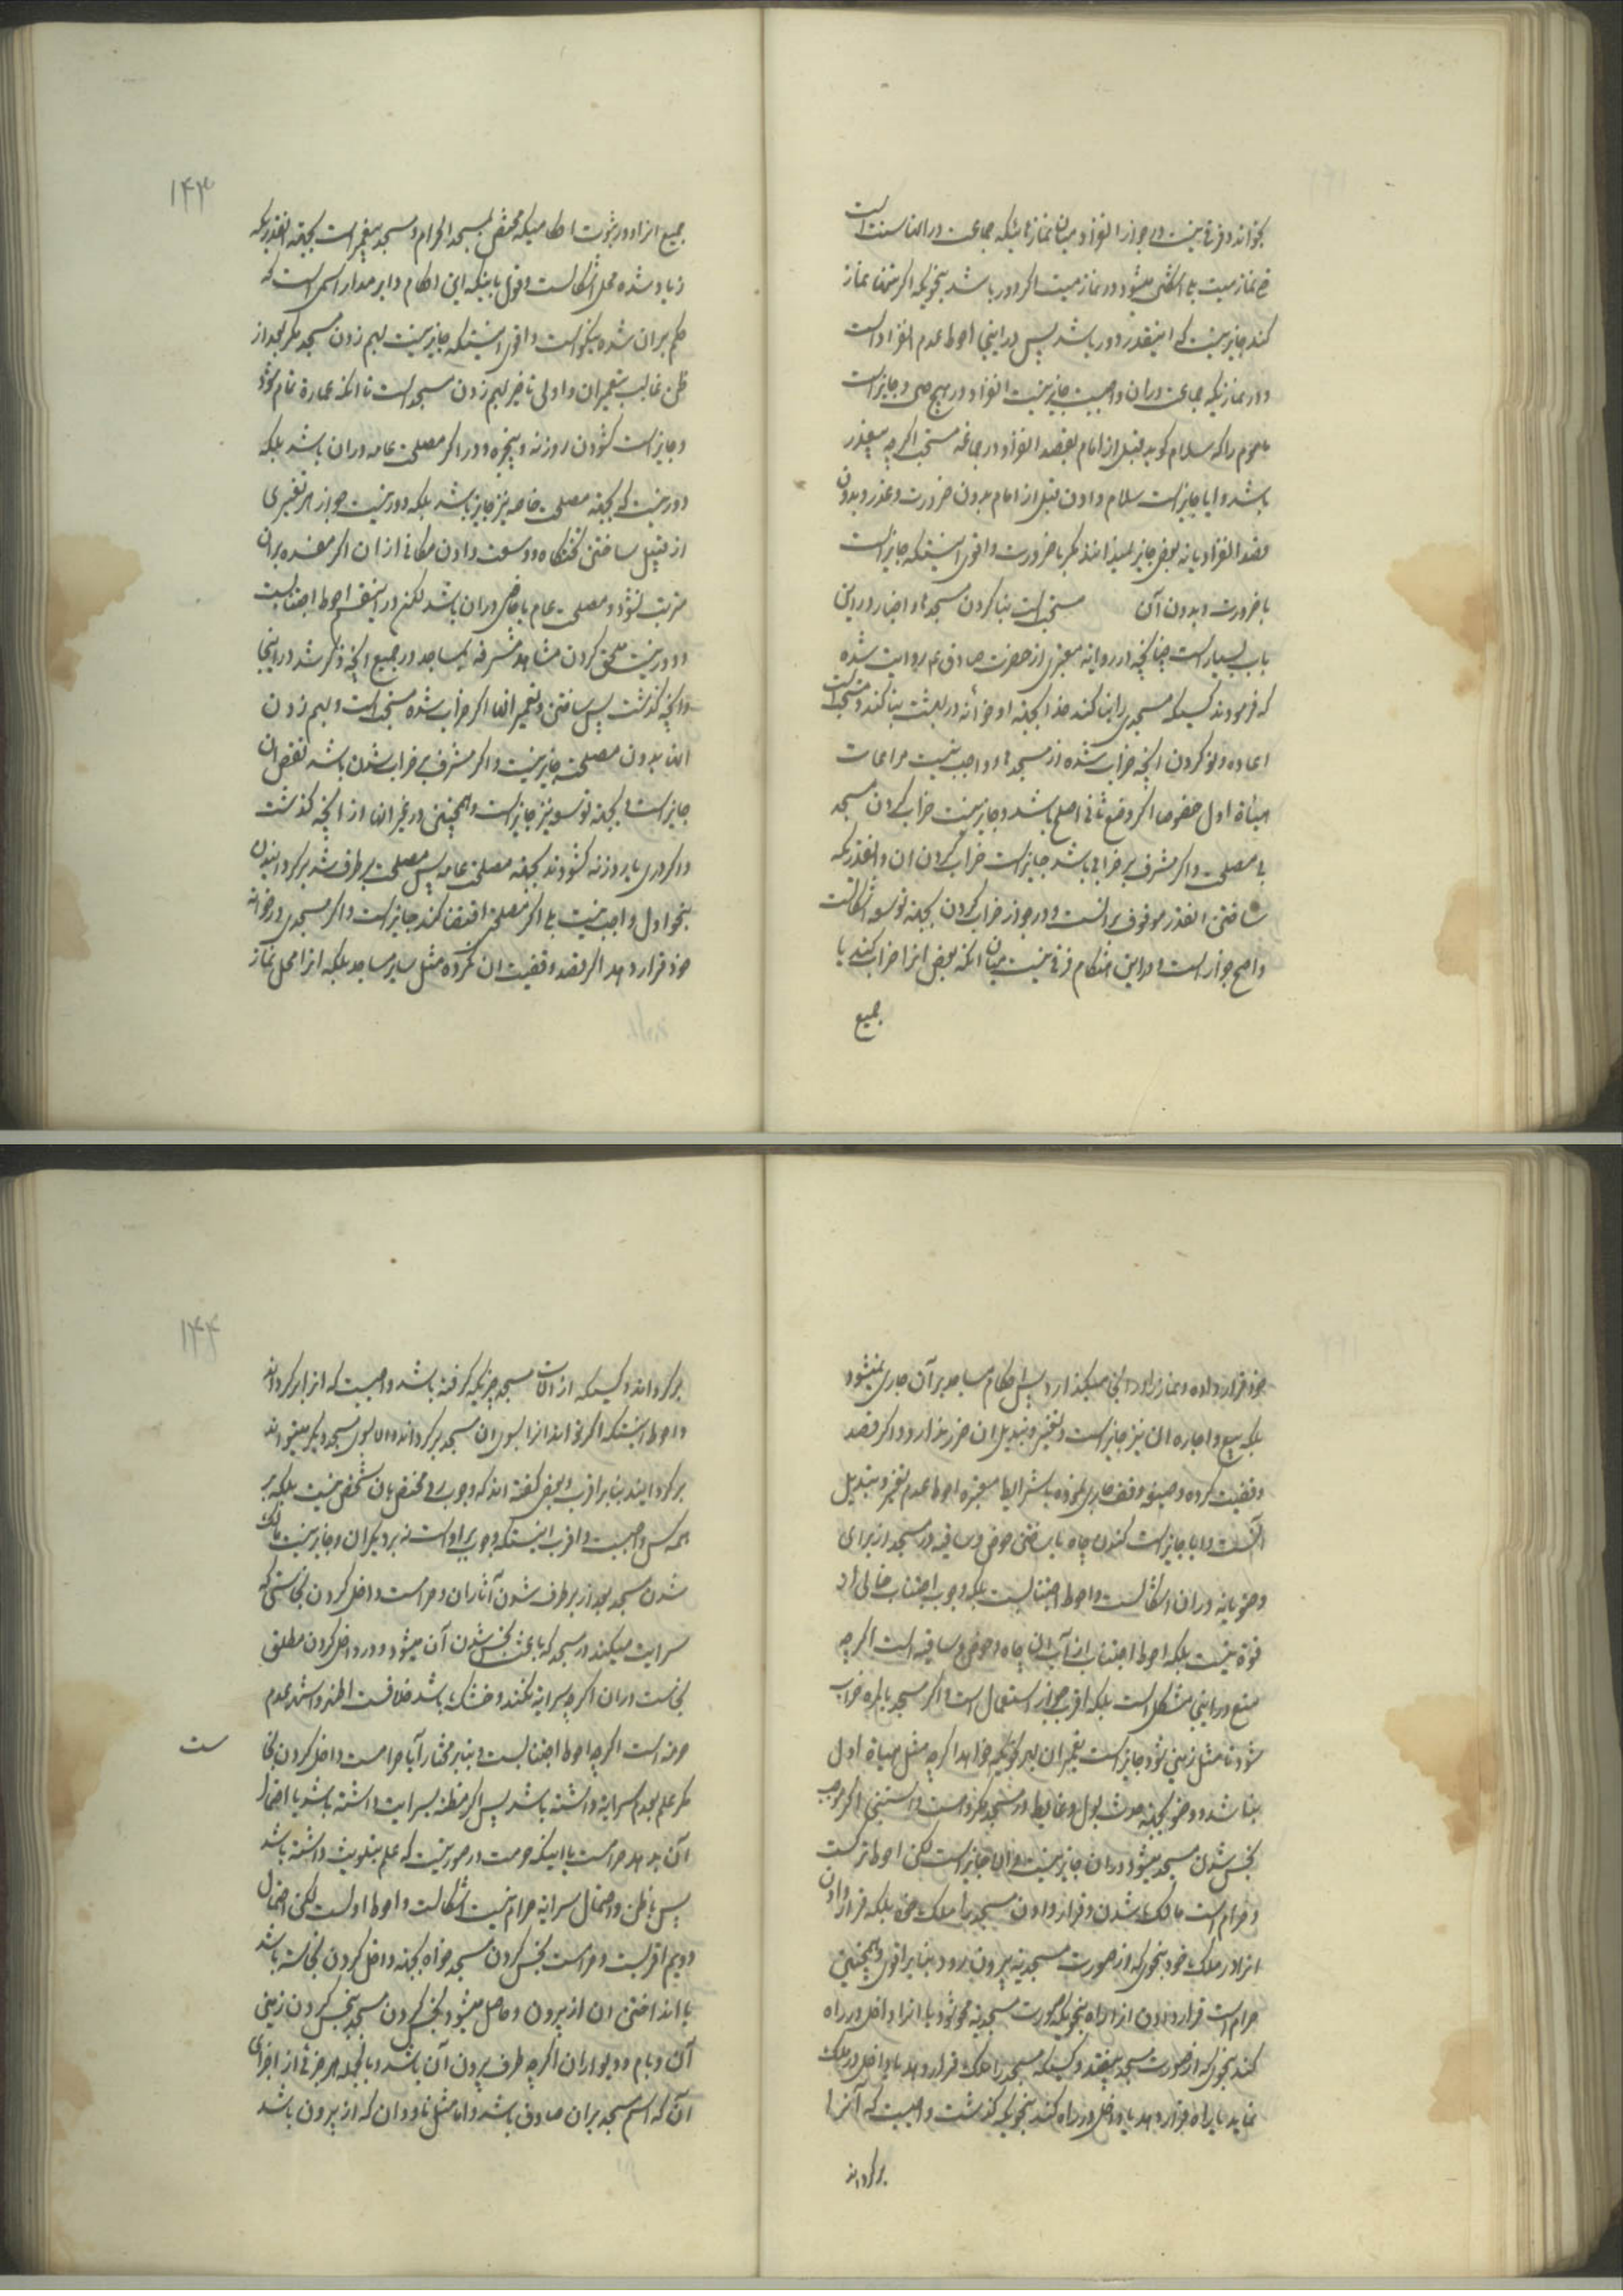 بخواند و فرقی نیست در جواز انفراد میان نمازهائیکه جماعت در انها سنت است
کند جایز نیست که اینقدر دور باشد پس در اینجا احوط عدم انفراد است
و در نمازیکه جماعت دران واجبست جایز نیست انفراد در هیچ و جایز است
ماموم را که سلام کوید قبل از امام بقصد انفراد در جماعة مستحب اکرچه بیعذر
باشد و ایا جایز است سلام دادن قبل از امام بدون ضرورت و عذر و بدون
قصد انفراد یا نه بعضی جایز نمیدانند مکر با ضرورت و اقوی اینستکه جایز است
با ضرورت و بدون آن مستحب است بنا کردن مسجدها و اخبار در این
باب بسیار است چنانچه در روایة معتبری از حضرت صادق ع م روایت شده
که فرمودند کسیکه مسجدی را بنا کند خدا بجهة او خانه در بهشت بنا کند و مستحب است
اعاده و نو کردن انچه خراب شده از مسجدها و واجب نیست مراعات
هیئاة اول خصوصا اکر وضع ثانی اصلح باشد و جایز نیست خراب کردن مسجد
بی مصلحت و اکر مشرف بر خرابی باشد جایز است خراب کردن ان و انقدریکه
ساختن انقدر موقوف بر انست و در جواز خراب کردن بجهة توسعه اشکالست
و اصح جواز است و در این هنکام فرقی نیست میان انکه بعض انرا خراب کند یا
جمیع
۱۴۳
جمیع انرا و در ثبوت احکامیکه مختص بمسجد الحرام و مسجد پیغمبر است بجهة انقدریکه
زیاد شده محل اشکالست و قول باینکه این احکام دایر مدار اسم است که
حکم بران شده نیکو است و اقوی اینستکه جایز نیست بهم زدن مسجد مکر بعد از
ظن غالب بتعمیر ان و اولی تاخیر بهم زدن مسجد است تا انکه عمارة تمام شود
و جایز است کشودن روزنه و پنجره و در اکر مصلحت عامه دران باشد بلکه
دور نیست که بجهة مصلحت خاصه نیز جایز باشد بلکه دور نیست جواز هر تغییری
از قبیل ساختن کفشکاه و وسعت دادن مکانی از ان اکر مفسده بران
مترتب نشود و مصلحت عام یا خاص دران باشد لکن در اینقسم احوط اجتنابست
و دور نیست ملحق کردن مشاهد مشرفه بمساجد در جمیع انچه ذکر شد در اینجا
و انچه کذشت پس ساختن و تعمیر انها اکر خراب شده مستحب است و بهم زدن
انها بدون مصلحت جایز نیست و اکر مشرف بر خراب شدن باشد نقض ان
جایز است و بجهة توسعه نیز جایز است و همچنین در غیر انها از انچه کذشت
و اکر دری یا روزنه کشودند بجهة مصلحت عامه پس مصلحت برطرف شد برکردانیدن
بنحو اول واجب نیست بلی اکر مصلحت اقتضا کند جایز است و اکر مسجدی در خانه
خود قرار دهد اکر قصد وقفیت ان نکرده مثل سایر مساجد بلکه انرا محل نماز
خود قرار داده و نماز را در انجا میکذارد پس احکام مساجد بر آن جاری نمیشود
بلکه بیع و اجاره ان نیز جایز است و تغییر و تبدیل ان ضرر ندارد و اکر قصد
وقفیت کرده و صیغه وقف جاری نموده با شرایط معتبره احوط عدم تغییر و تبدیل
آنست و ایا جایز است کندن چاه یا ساختن حوض و ساقیه در مسجد از برای
وضو یا نه دران اشکالست و احوط اجتنابست بلکه وجوب اجتناب خالی از
قوة نیست بلکه احوط اجتناب از آب ان چاه و حوض و ساقیه است اکرچه
منع در اینجا مشکل است بلکه اقرب جواز استعمال است و اکر مسجد بالمره خراب
شود تا مثل زمین شود جایز است تعمیر ان بهر نحویکه خواهد اکرچه مثل هیاة اول
نباشد و وضو بجهة حدث بول و غایط در مسجد مکروهست و استنجا اکر موجب
نجس شدن مسجد میشود دران جایز نیست و الا جایز است لکن احوط ترکست
و حرام است مالک شدن و قرار دادن مسجد را ملک خود بلکه قرار دادن
انرا در ملک خود بنحوی که از صورت مسجدیة بیرون رود بنا بر اقوی و همچنین
حرام است قرار دادن انرا راه بنحویکه صورت مسجدیة محو شود یا انرا داخل در راه
کند بنحویکه از صورت مسجد بیفتد و کسیکه مسجد را ملک قرار دهد یا داخل در ملک
نماید یا راه قرار دهد یا داخل در راه کند بنحویکه کذشت واجبست که آنرا
برکرداند
۱۴۴
برکرداند و کسیکه از الات مسجد چیزیکه کرفته باشد واجبست که انرا برکرداند
و احوط اینستکه اکر نتواند انرا بسوی ان مسجد برکرداند بسوی مسجد دیکر
برکردانیدن بنا بر اقرب و بعضی کفته اند که وجوب رد مختص بان شخص نیست بلکه بر
همه کس واجبست و اقرب اینستکه وجوب بر اوست نه بر دیکران و جایز نیست مالک
شدن مسجد بعد از برطرف شدن آثار ان و حرامست داخل کردن نجاستی که
سرایت میکند در مسجد که باعث نجس شدن آن میشود و در داخل کردن مطلق
نجاست دران اکرچه سرایة نکند و خشک باشد خلافست اظهر و اشهر عدم
حرمة است اکرچه احوط اجتنابست و بنا بر مختار آیا حرامست داخل کردن نجا
ست
مکر علم بعدم سرایة داشته باشد پس اکر مظنه بسرایت داشته باشد یا احتمال
آن بدهد حرامست یا اینکه حرمت در صورتیست که علم بتلویث داشته باشد
پس با ظن و احتمال سرایة حرام نیست اشکالست و احوط اولست لکن احتمال
دویم اقربست و حرامست نجس کردن مسجد خواه بجهة داخل کردن نجاسة باشد
یا انداختن ان از بیرون و حاصل میشود نجس کردن مسجد بنجس کردن زمین
آن و بام و دیوار ان اکرچه طرف بیرون آن باشد و بالجمله هر جزئی از اجزای
آن که اسم مسجد بران صادق باشد و اما مثل ناودان که از بیرون باشد